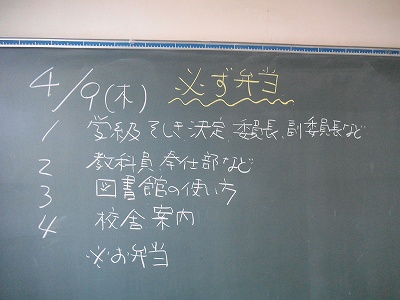 4/9(木) 必ず弁当
1 学級そしき決定、委員長、副委員長など
2 教科員、奉仕部など
3 図書館の使い方
4 校舎案内
※お弁当